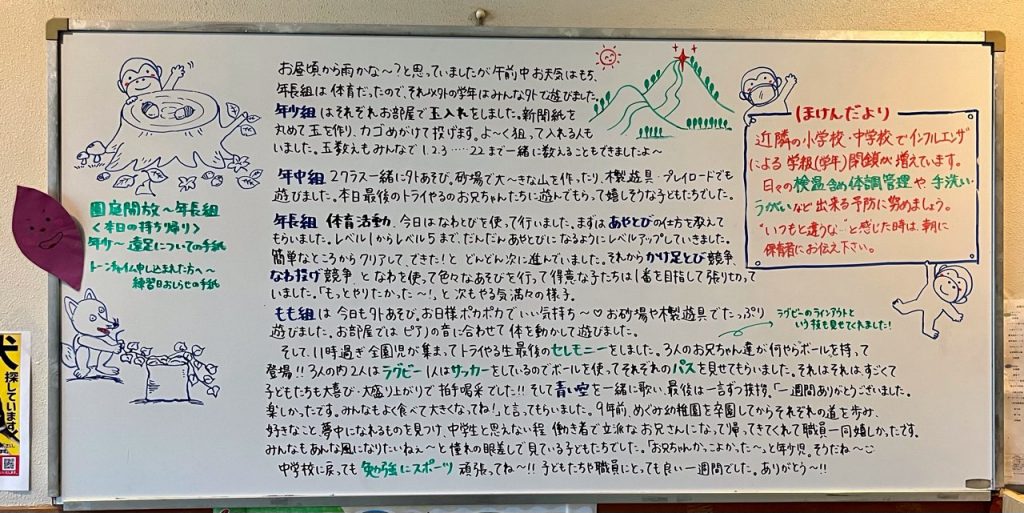 お昼頃から雨かな〜?と思っていましたが午前中お天気はもち、
年長組は体育だったので、それ以外の学年はみんな外で遊びました。
年少組はそれぞれお部屋で玉入れをしました。新聞紙を
丸めて玉を作り、カゴめがけて投げます。よ〜く狙って入れる人も
いました。玉数えもみんなで1.2.3……22まで一緒に数えることもできましたよ〜
年中組 2クラス一緒に外あそび。砂場で大〜きな山を作ったり、木製遊具・プレイロードでも
遊びました。本日最後のトライやるのお兄ちゃんたちに遊んでもらって嬉しそうな子どもたちでした。
年長組 体育活動、今日はなわとびを使って行いました。まずはあやとびの仕方を教えて
もらいました。レベル1からレベル5まで、だんだんあやとびになるようにレベルアップしていきました。
簡単なところからクリアして、できた!とどんどん次に進んでいました。それからかけ足とび競争、
なわ投げ競争、となわを使って色々なあそびを行って得意な子たちは1番を目指して張り切って
いました。「もっとやりたかった〜!」と次もやる気満々の様子。
もも組は今日も外あそび。お日様ポカポカでいい気持ち〜♡お砂場や木製遊具でたっぷり
遊びました。お部屋ではピアノの音に合わせて体を動かして遊びました。
ラグビーのラインアウトと
いう技も見せてくれました!
そして、11時過ぎ全園児が集まってトライやる生最後のセレモニーをしました。3人のお兄ちゃん達が何やらボールを持って
登場!!3人の内2人はラグビー1人はサッカーをしているのでボールを使ってそれぞれのパスを見せてもらいました。それはそれはすごくて
子どもたちも大喜び・大盛り上がりで拍手喝采でした!!そして青い空を一緒に歌い、最後は一言ずつ挨拶。「一週間ありがとうございました。
楽しかったです。みんなもよく食べて大きくなってね!」と言ってもらいました。9年前、めぐみ幼稚園を卒園してからそれぞれの道を歩み、
好きなこと夢中になれるものを見つけ、中学生と思えない程 働き者で立派なお兄さんになって帰ってきてくれて職員一同嬉しかったです。
みんなもあんな風になりたいねぇ〜と憧れの眼差しで見ている子どもたちでした。「お兄ちゃんかっこよかった〜」と年少児。そうだね〜
中学校に戻っても勉強にスポーツ頑張ってね〜!!子どもたちや職員にとっても良い一週間でした。ありがとう〜!!
園庭開放〜年長組
<本日の持ち帰り>
年少〜遠足についての手紙
トーンチャイム申し込まれた方へ〜
練習日お知らせの手紙
ほけんだより
近隣の小学校・中学校でインフルエンザ
による学級(学年)閉鎖が増えています。
日々の検温含め体調管理や手洗い・
うがいなど出来る予防に努めましょう。
"いつもと違うな"と感じた時は、朝に
保育者にお伝え下さい。
犬
探しています